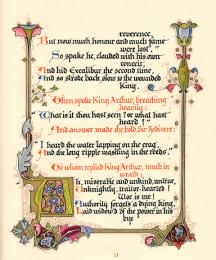 reverence,
But now much honour and much fame
were lost."
So spake he, clouded with his own
conceit,
And hid Excalibur the second time,
And so strode back slow to the wounded
King.
Then spoke King Arthur, breathing
heavily:
"What is it thou hast seen? or what hast
heard?"
And answer made the bold Sir Bedivere:
"I heard the water lapping on the crag,
And the long ripple washing in the reeds."
To whom replied King Arthur, much in
wrath:
"Ah, miserable and unkind, untrue,
Unknightly, traitor-hearted!
Woe is me!
Authority forgets a dying king,
Laid widow'd of the power in his
eye